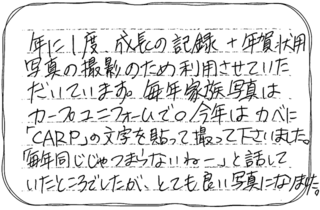 年に1度、成長の記録+年賀状用
写真の撮影のため利用させていた
だいています。毎年家族写真は
カープユニフォームで。今年はカベに
「CARP」の文字を貼って撮って下さいました。
「毎年同じじゃつまらないねー」と話して
いたところでしたが、とても良い写真になりました。